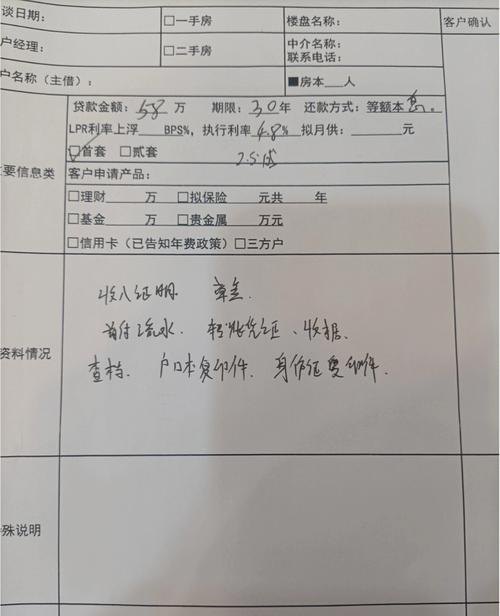 谈日期： □一手房 楼盘名称： 客户确认
户经理： □二手房 中介名称：
联系电话：
户名称（主借）： ■房本___人
贷款金额：58 万 期限：30年 还款方式：等额本息。
LPR利率上浮____BPS%，执行利率4.8% 拟月供：______元
☑首套 □贰套 2.5成
要信息类 客户申请产品：
□理财____万 □拟保险____元共____年
□基金____万 □贵金属____万元
□信用卡（已告知年费政策）□三方户
收入证明 章盖.
首付流水. 转账凭证、收据.
资料情况
查档. 户口本复印件. 身份证复印件.
殊说明